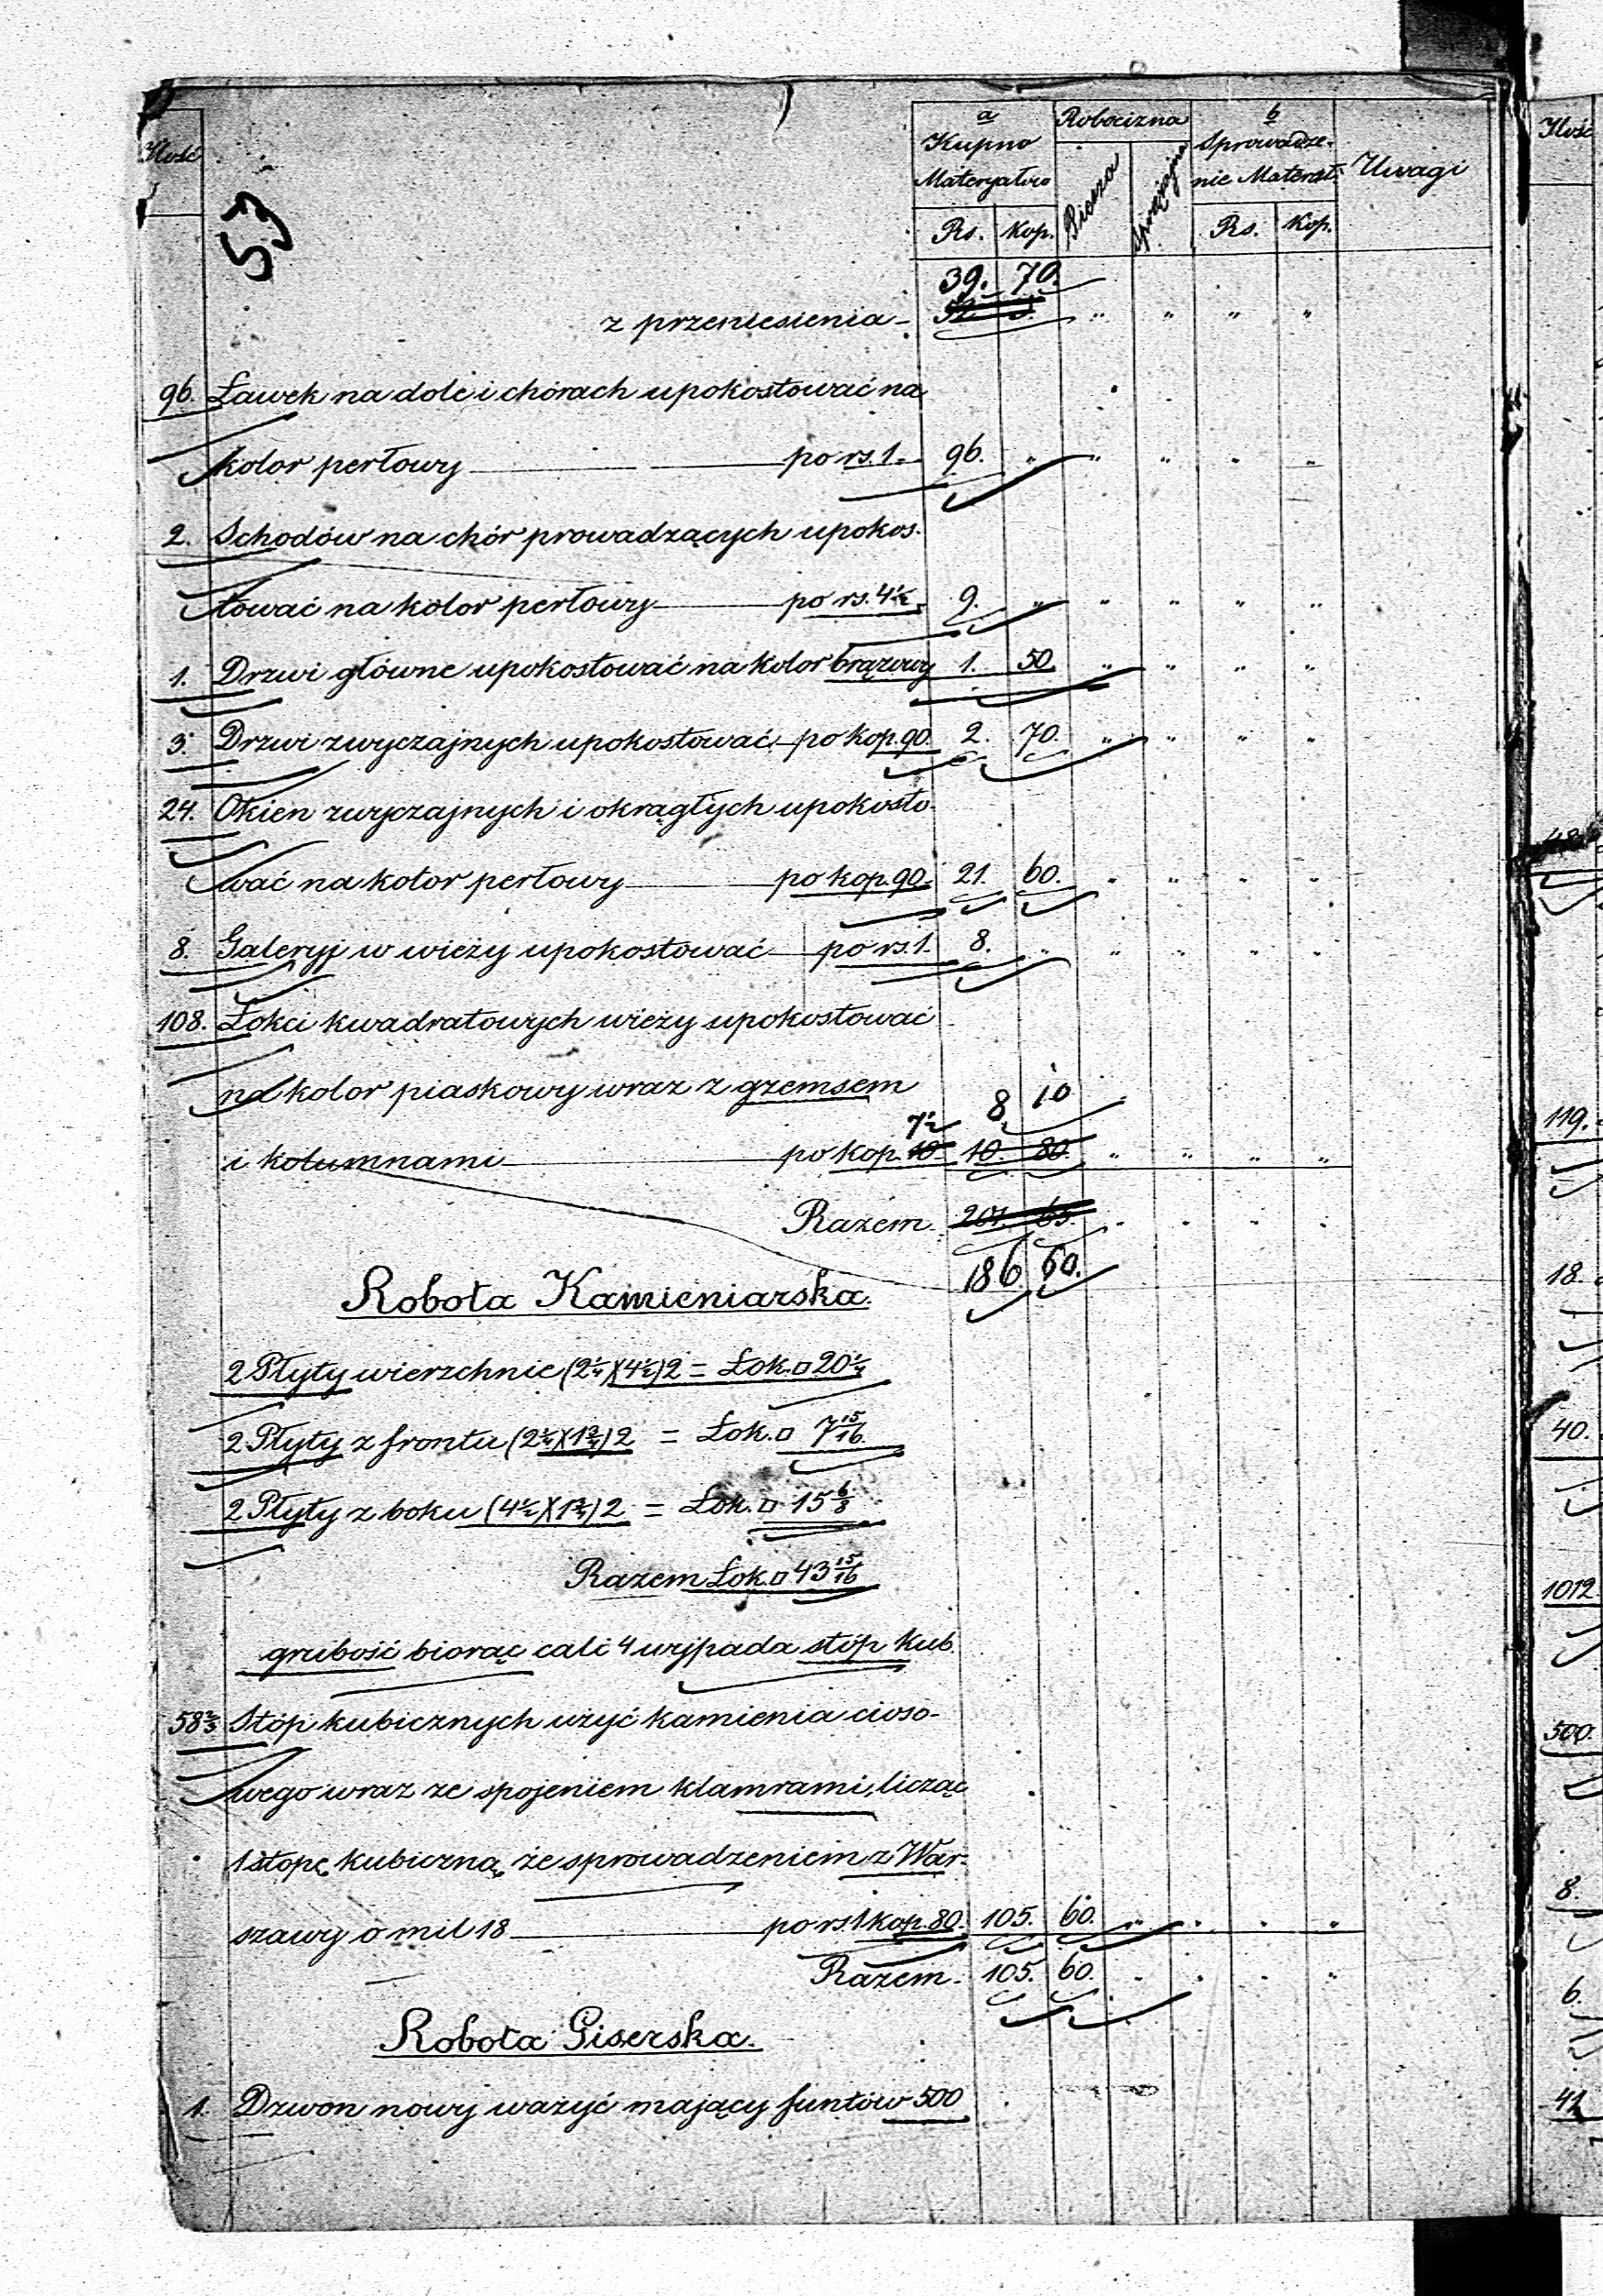 Ilość
a
Kupno
Materyałów
Rs. Kop.
Robocizna
Piesza
Sprzężajna
b
Sprowadze-
nie Materał.
Rs. Kop.
Uwagi
53
39. 70.
z przeniesienia
96. Ławek na dole i chórach upokostować na
kolor perłowy po rs. 1. 96. "
2. Schodów na chór prowadzących upokos-
tować na kolor perłowy po rs. 4½ 9. "
1. Drzwi główne upokostować na kolor brązowy 1. 50.
3. Drzwi zwyczajnych upokostować po kop. 90. 2. 70.
24. Okien zwyczajnych i okrągłych upokosto-
wać na kolor perłowy po kop. 90. 21. 60.
8. Galeryj w wieży upokostować po rs. 1. 8. "
108. Łokci kwadratowych wieży upokostować
na kolor piaskowy wraz z gzemsem 8 10
7½
i kolumnami po kop. 10. 10. 80.
Razem 207. 65.
186. 60.
Robota Kamieniarska.
2 Płyty wierzchnie (2¼)(4½)2 = Łok. □ 20¼
2 Płyty z frontu (2¼)(1¾)2 = Łok. □ 7 15/16
2 Płyty z boku (4½)(1¾)2 = Łok. □ 15 6/8
Razem Łok. □ 43 15/16
grubość biorąc cali 4 wypada stóp kub.
58⅔ Stóp kubicznych użyć kamienia cioso-
wego wraz ze spojeniem klamrami, licząc
1 stopę kubiczną ze sprowadzeniem z War-
szawy o mil 18 po rs 1 kop. 80. 105. 60.
Razem 105. 60.
Robota Giserska.
1. Dzwon nowy ważyć mający funtów 500
Ilość
119.
18.
40.
1012
500.
8.
6.